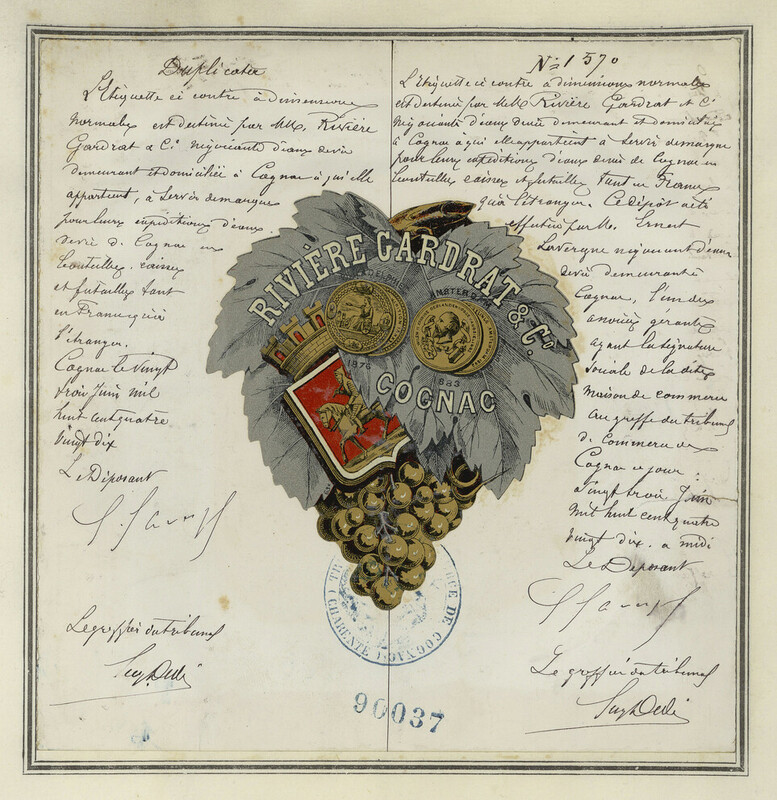 Duplicata
L'Etiquette ci contre à dimensions
normales est destinée par MM. Rivière
Gardrat & Cie négociants d'eaux de vie
demeurant et domiciliés à Cognac à qui elle
appartient, à servir de marque
pour leurs expéditions d'eaux
de vie de Cognac en
bouteilles. caisses
et futailles tant
en France qu'à
l'étranger.
Cognac le vingt
trois Juin mil
huit cent quatre
vingt dix
Le Déposant
Le greffier du tribunal
No 1570
L'Etiquette ci contre à dimensions normales
est destinée par MM. Rivière Gardrat et Cie
négociants d'eaux de vie demeurant et domiciliés
à Cognac à qui elle appartient à servir de marque
pour leurs expéditions d'eaux de vie de Cognac en
bouteilles caisses et futailles tant en France
qu'à l'étranger. Ce dépôt a été
effectué par M. Ernest
Lavergne négociant d'eaux
de vie demeurant à
Cognac, l'un des
associés gérants
ayant la signature
sociale de la dite
maison de commerce
au greffe du tribunal
de Commerce de
Cognac ce jour
vingt trois Juin
mil huit cent quatre
vingt dix. à midi
Le Déposant
Le greffier du tribunal
RIVIÈRE GARDRAT & Co.
PHILADELPHIE
AMSTERDAM
1876
1883
COGNAC
CHARENTE
DE COGNAC
90037